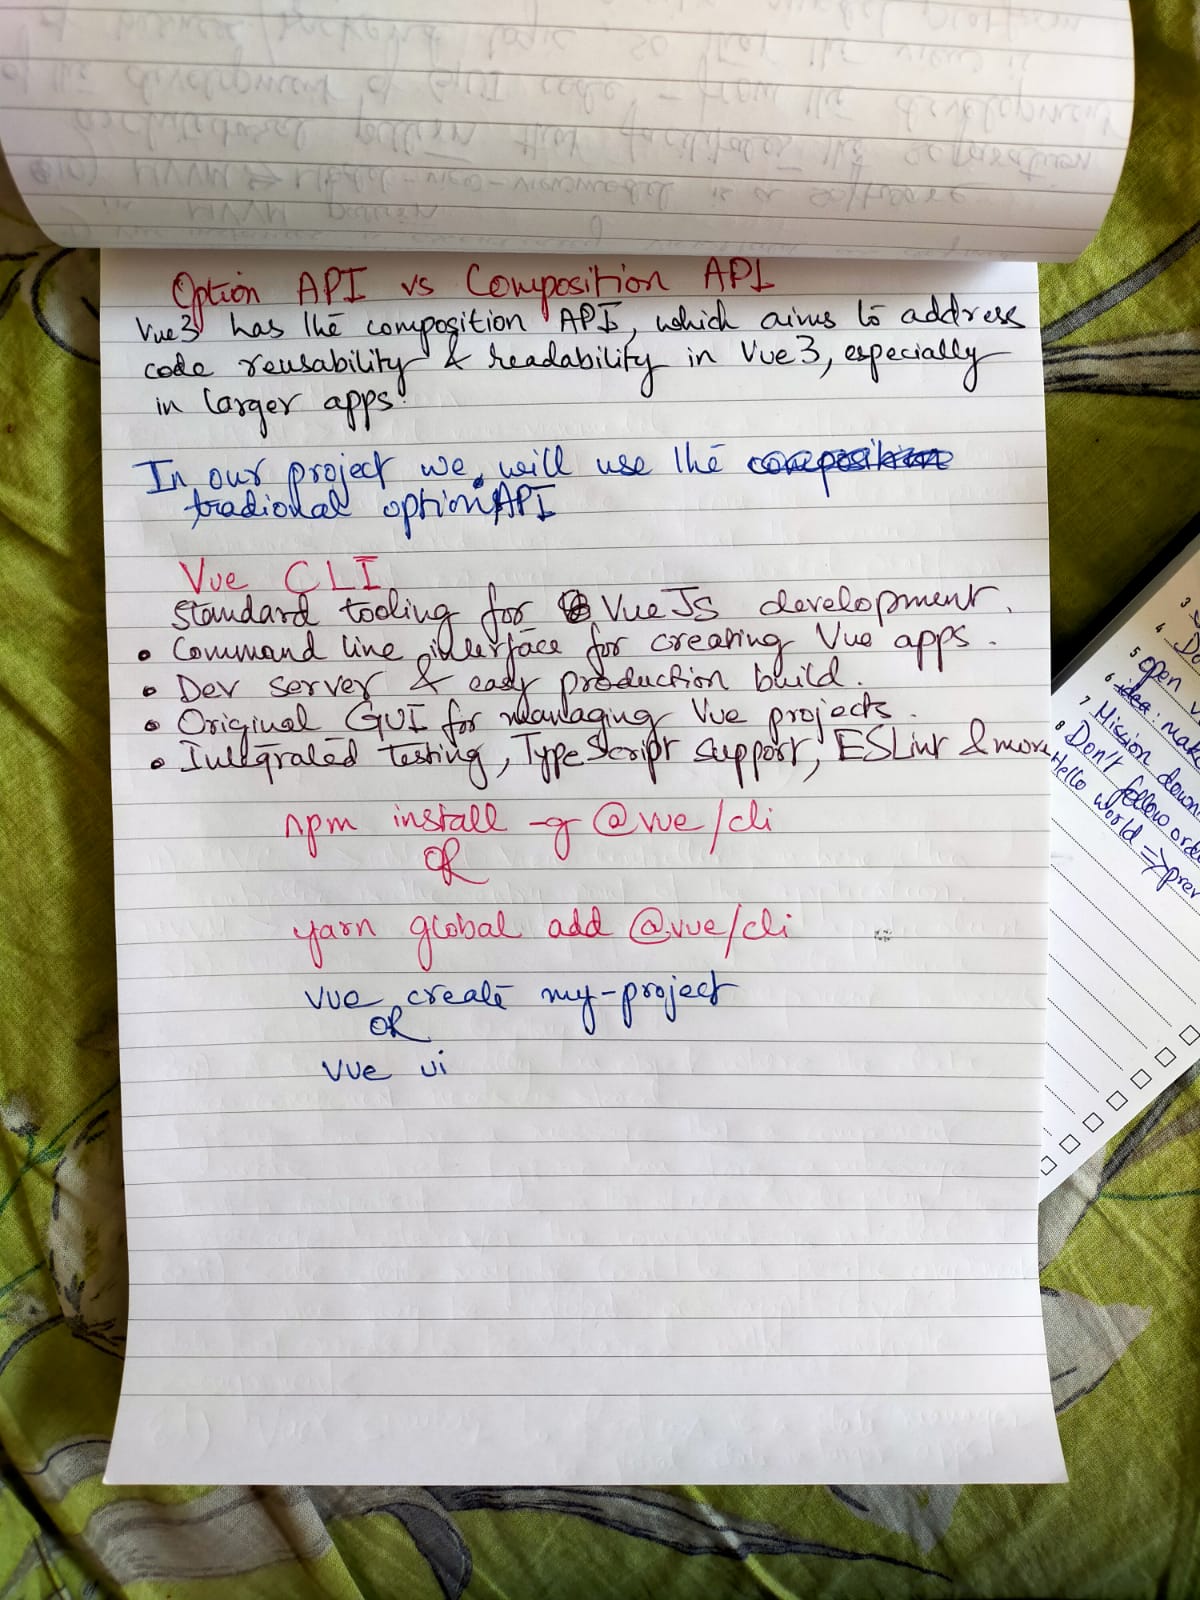 Option API vs Composition API
Vue3 has the composition API, which aims to address
code reusability & readability in Vue3, especially
in larger apps.
In our project we will use the composition
tradional option API
Vue CLI
Standard tooling for VueJS development.
• Command line interface for creating Vue apps.
• Dev server & easy production build.
• Original GUI for managing Vue projects.
• Integrated Testing, TypeScript support, ESLint & more
npm install -g @vue/cli
OR
yarn global add @vue/cli
vue create my-project
OR
vue ui
3
4 Do
5 open
6 idea: make
7 Mission down
8 Don't follow orde
Hello world => prev